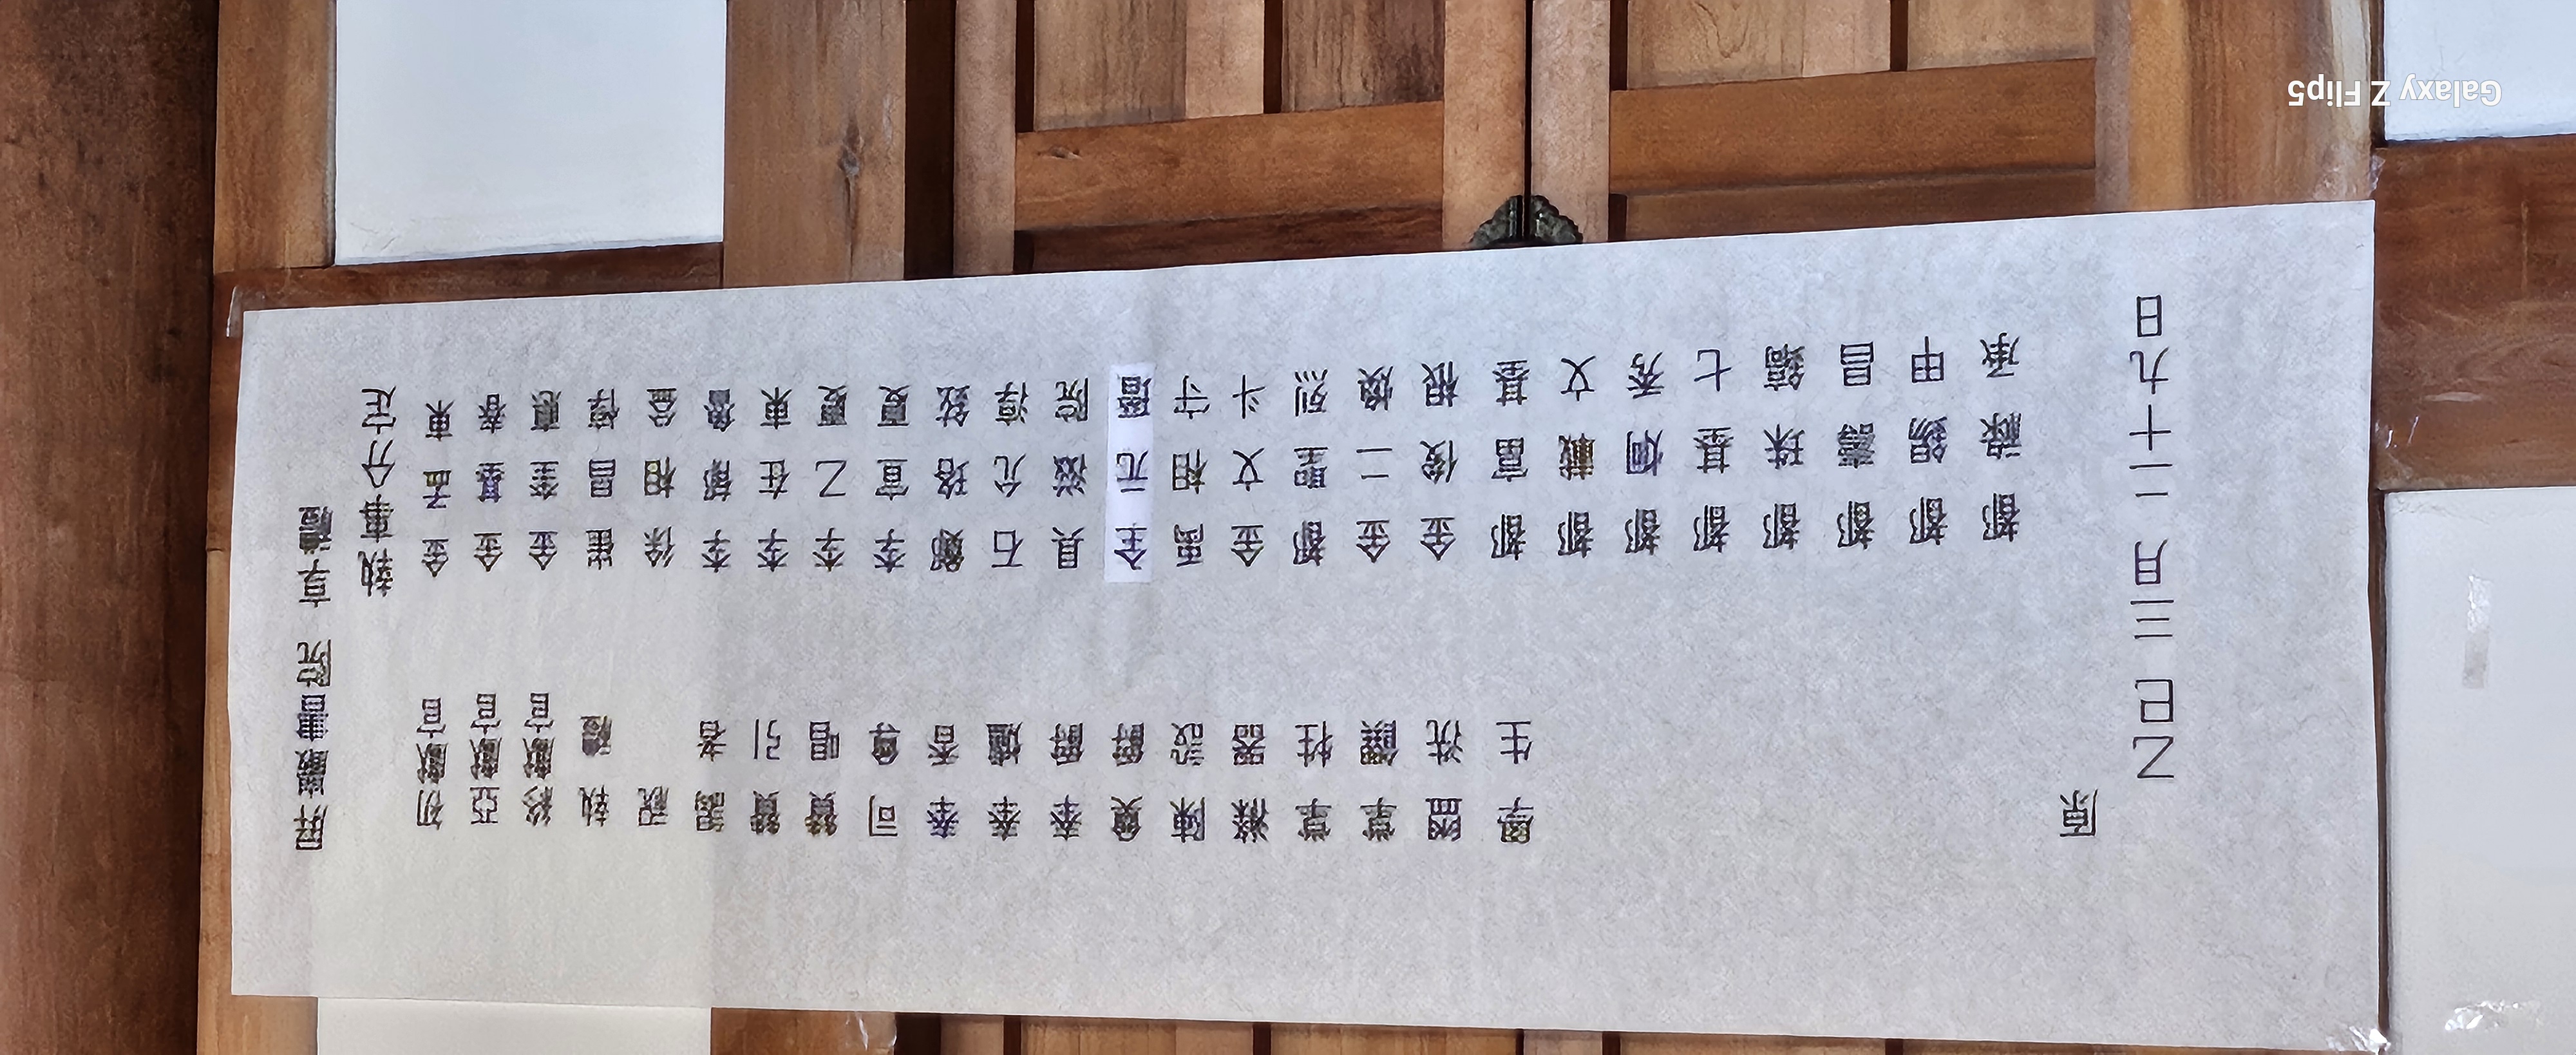 屛巖書院 享禮
執事分定
初獻官 金孟東
亞獻官 金基春
終獻官 金奎憲
執禮 崔昌
祝 徐相益
謁者 李 魯
贊引 李在東
贊唱 李乙夏
司尊 李宣夏
奉香 鄭珞
奉爐 石允淳
奉爵 具滋院
奠爵 全元
陳設 禹相守
滌器 金文斗
掌牲 都聖烈
掌饌 金二煥
盥洗 金俊根
學生 都富基
都載文
都炯秀
都基七
都珠鎬
都壽昌
都錫甲
都祿承
原
乙巳三月二十九日
Galaxy Z Flip5